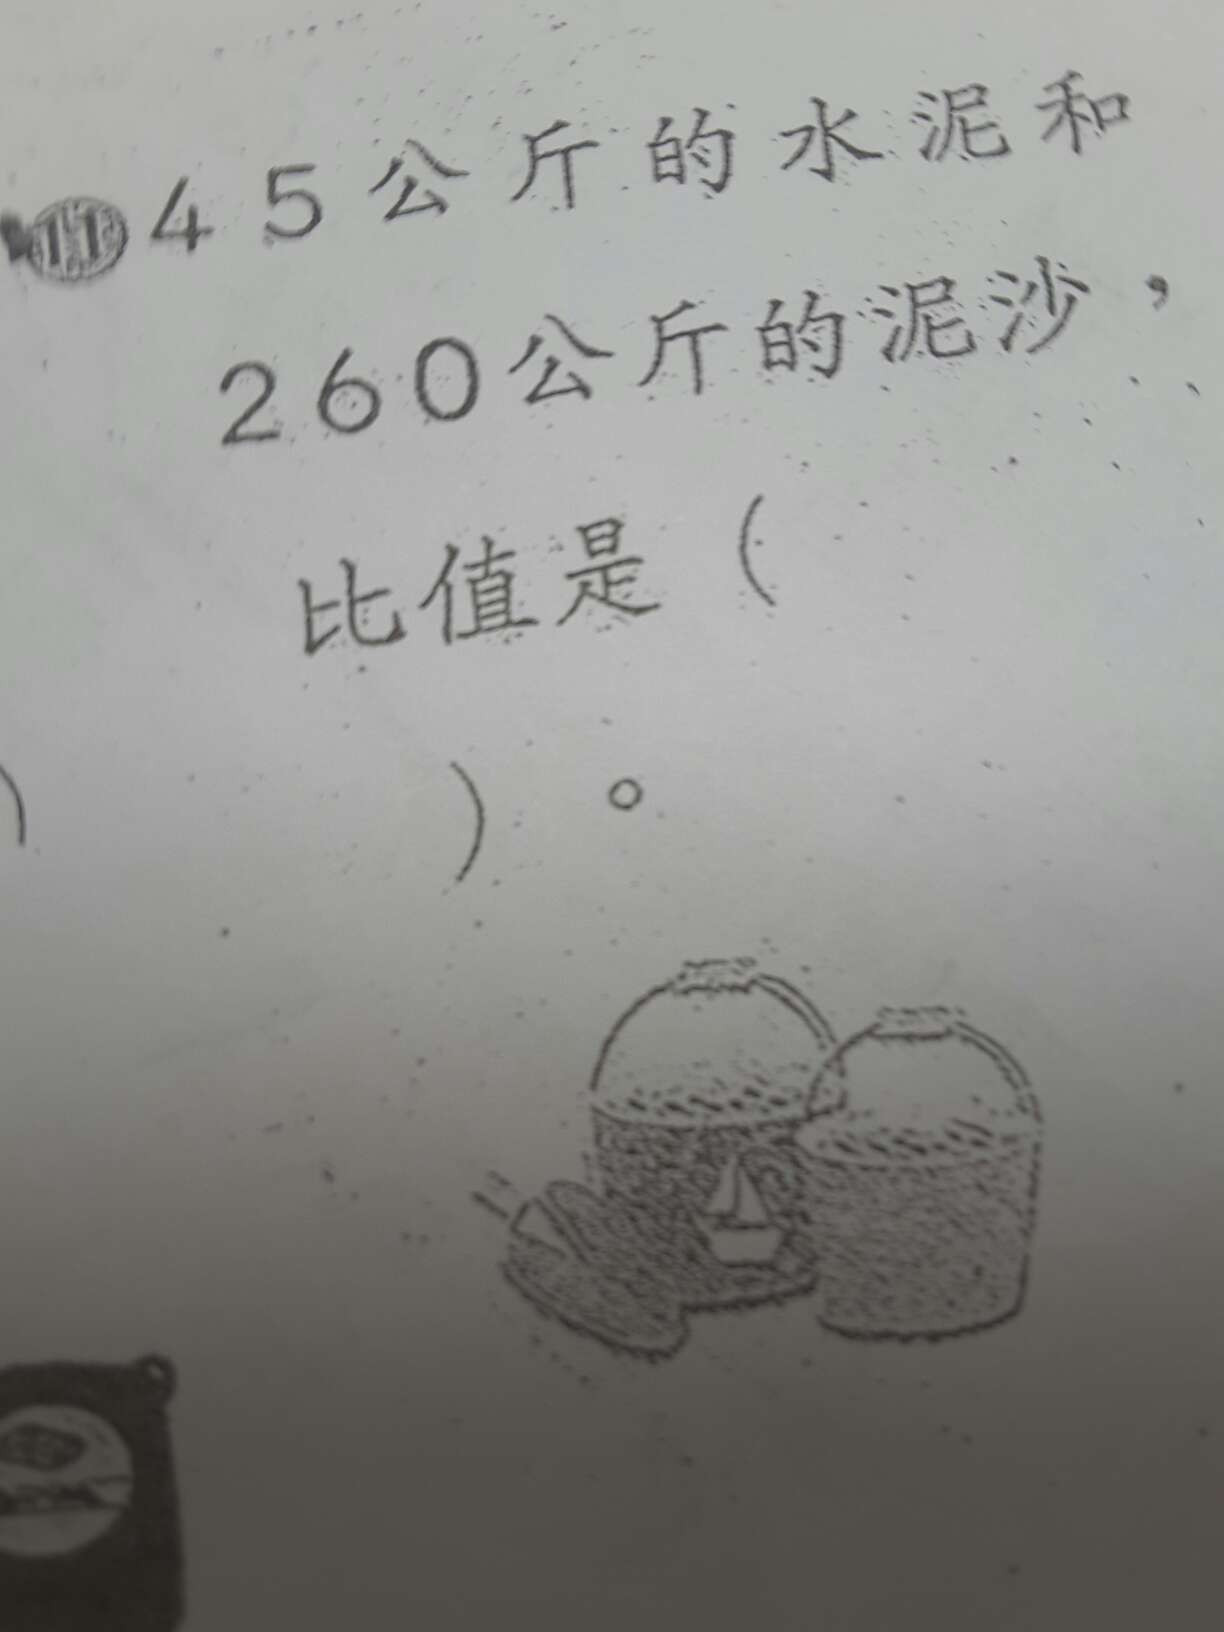 11 45公斤的水泥和
260公斤的泥沙，
比值是（
）。
）